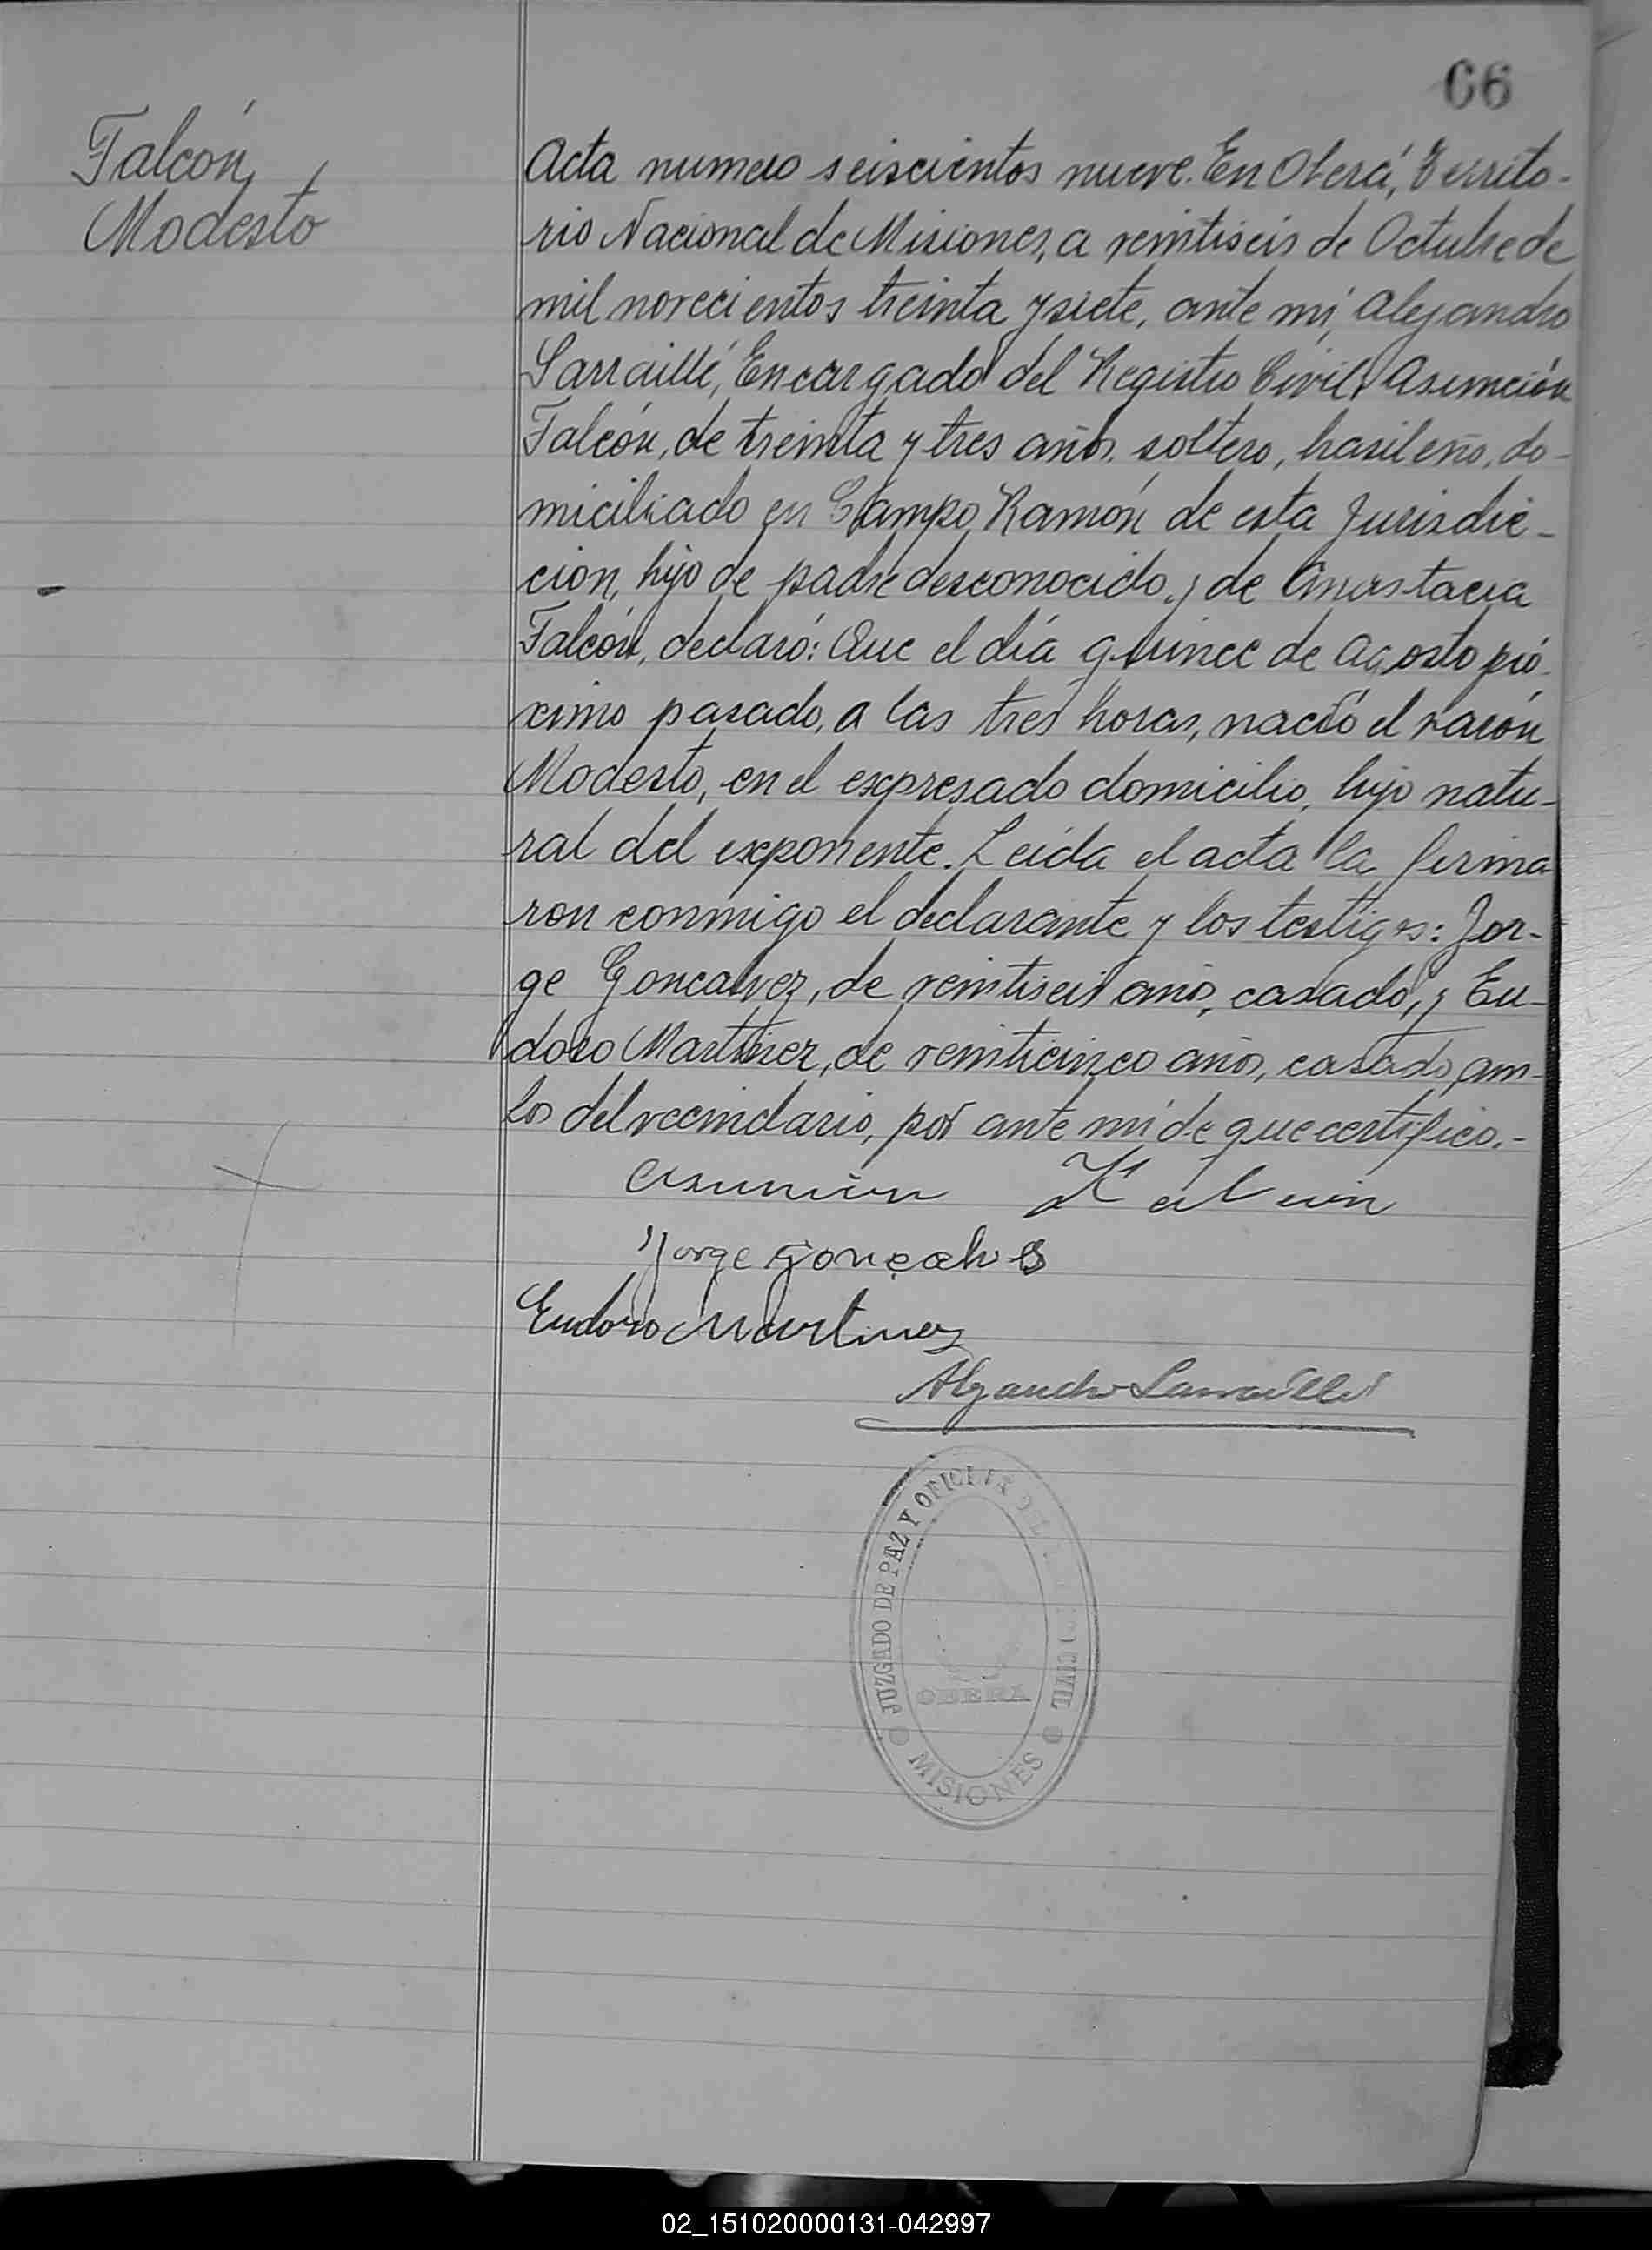 66
Falcón,
Modesto
Acta numero seiscientos nueve. En Oberá, Territo-
rio Nacional de Misiones, a veintiseis de Octubre de
mil novecientos treinta y siete, ante mí, Alejandro
Sarraillé, Encargado del Registro Civil, Asunción
Falcón, de treinta y tres años, soltero, brasileño, do-
miciliado en Campo Ramón de esta Jurisdic-
cion, hijo de padre desconocido y de Anastacia
Falcón, declaró: Que el día quince de Agosto pró-
ximo pasado, a las tres horas, nació el varón
Modesto, en el expresado domicilio, hijo natu-
ral del exponente. Leida el acta la firma
ron conmigo el declarante y los testigos: Jor-
ge Goncalvez, de veintiseis años, casado, y Eu-
doro Martinez, de veinticinco años, casado, am-
bos del vecindario, por ante mí de que certifico.-
Asunción Falcón
Jorge Gonçalves
Eudoro Martinez
Alejandro Sarraillé
JUZGADO DE PAZ Y OFICINA DEL CIVIL
OBERA
MISIONES
02_151020000131-042997